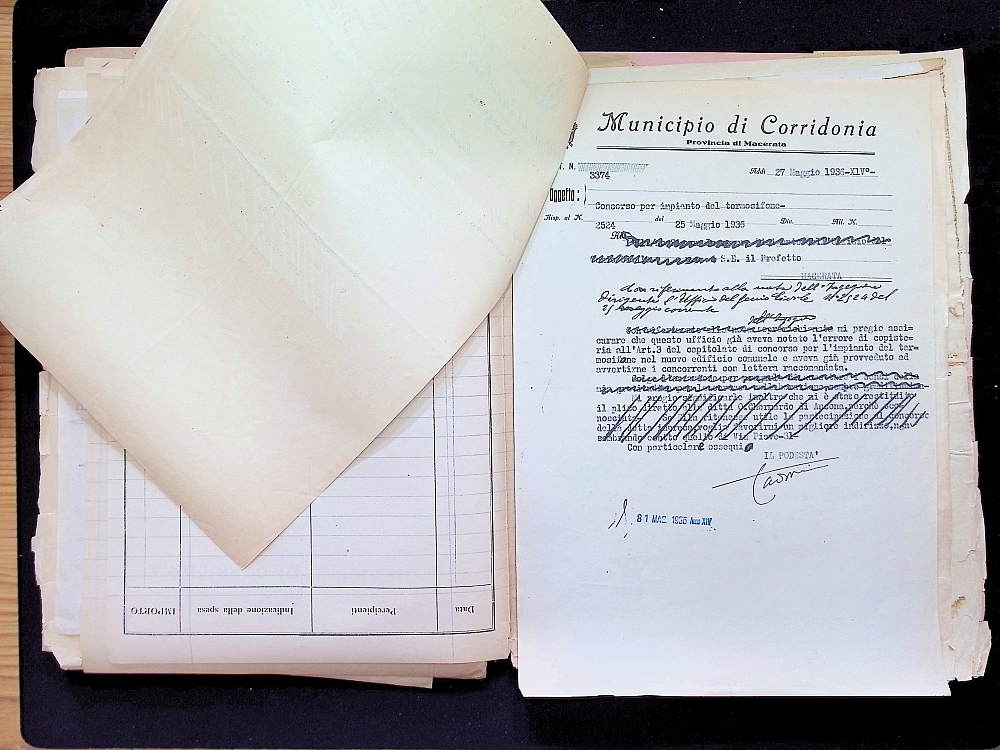 Municipio di Corridonia
Provincia di Macerata
N.
3374
Addì 27 Maggio 1936-XIVº-
Oggetto:
Concorso per impianto del termosifone-
Risp. al N. 2524 del 25 Maggio 1936 Div. All. N.
S.E. il Prefetto
MACERATA
Con riferimento alla nota dell'Ingegnere
Dirigente l'Ufficio del Genio Civile N° 2524 del
25 maggio corrente
mi pregio assi=
curare che questo ufficio già aveva notato l'errore di copiste=
ria all'Art.3 del capitolato di concorso per l'impianto del ter=
mosifone nel nuovo edificio comunale e aveva già provveduto ad
avvertirne i concorrenti con lettera raccomandata.
Mi pregio significarle inoltre che mi è stato restituito
il plico diretto alla ditta di Ancona, perchè sco=
nosciuta. Se Ella ritenesse utile la partecipazione al concorso
della ditta voglia favorirmi un migliore indirizzo, non
sembrando esatto quello di Via Piave-31
Con particolare ossequio
IL PODESTA'
31 MAG. 1936 Anno XIV
Data
Percipienti
Indicazione della spesa
IMPORTO